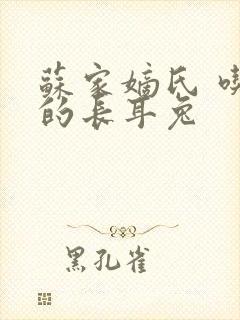 蘇家嫡氏
的長耳兔
黑孔雀